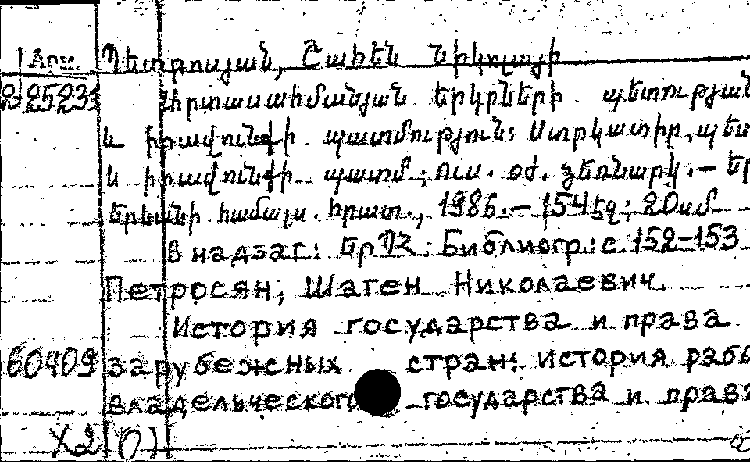 Арм. Պետրոսյան, Շահեն Նիկոլայի
2 2523 Արտասահմանյան երկրների պետության
և իրավունքի պատմություն: Ստրկատիր. պետ
և իրավունքի պատմ.: Ուս. օժ. ձեռնարկ. – Եր
Երևանի համալս. հրատ., 1986. – 154 էջ; 20 սմ
В надзаг.: ԵրՊՀ. Библиогр.: с. 152-153
Петросян, Шаген Николаевич.
История государства и права
60409 зарубежных стран: История рабо
владельческого государства и права
X2(0)1